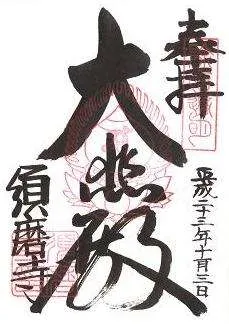 奉拝
平成二十三年十月三日
大悲殿
須磨寺